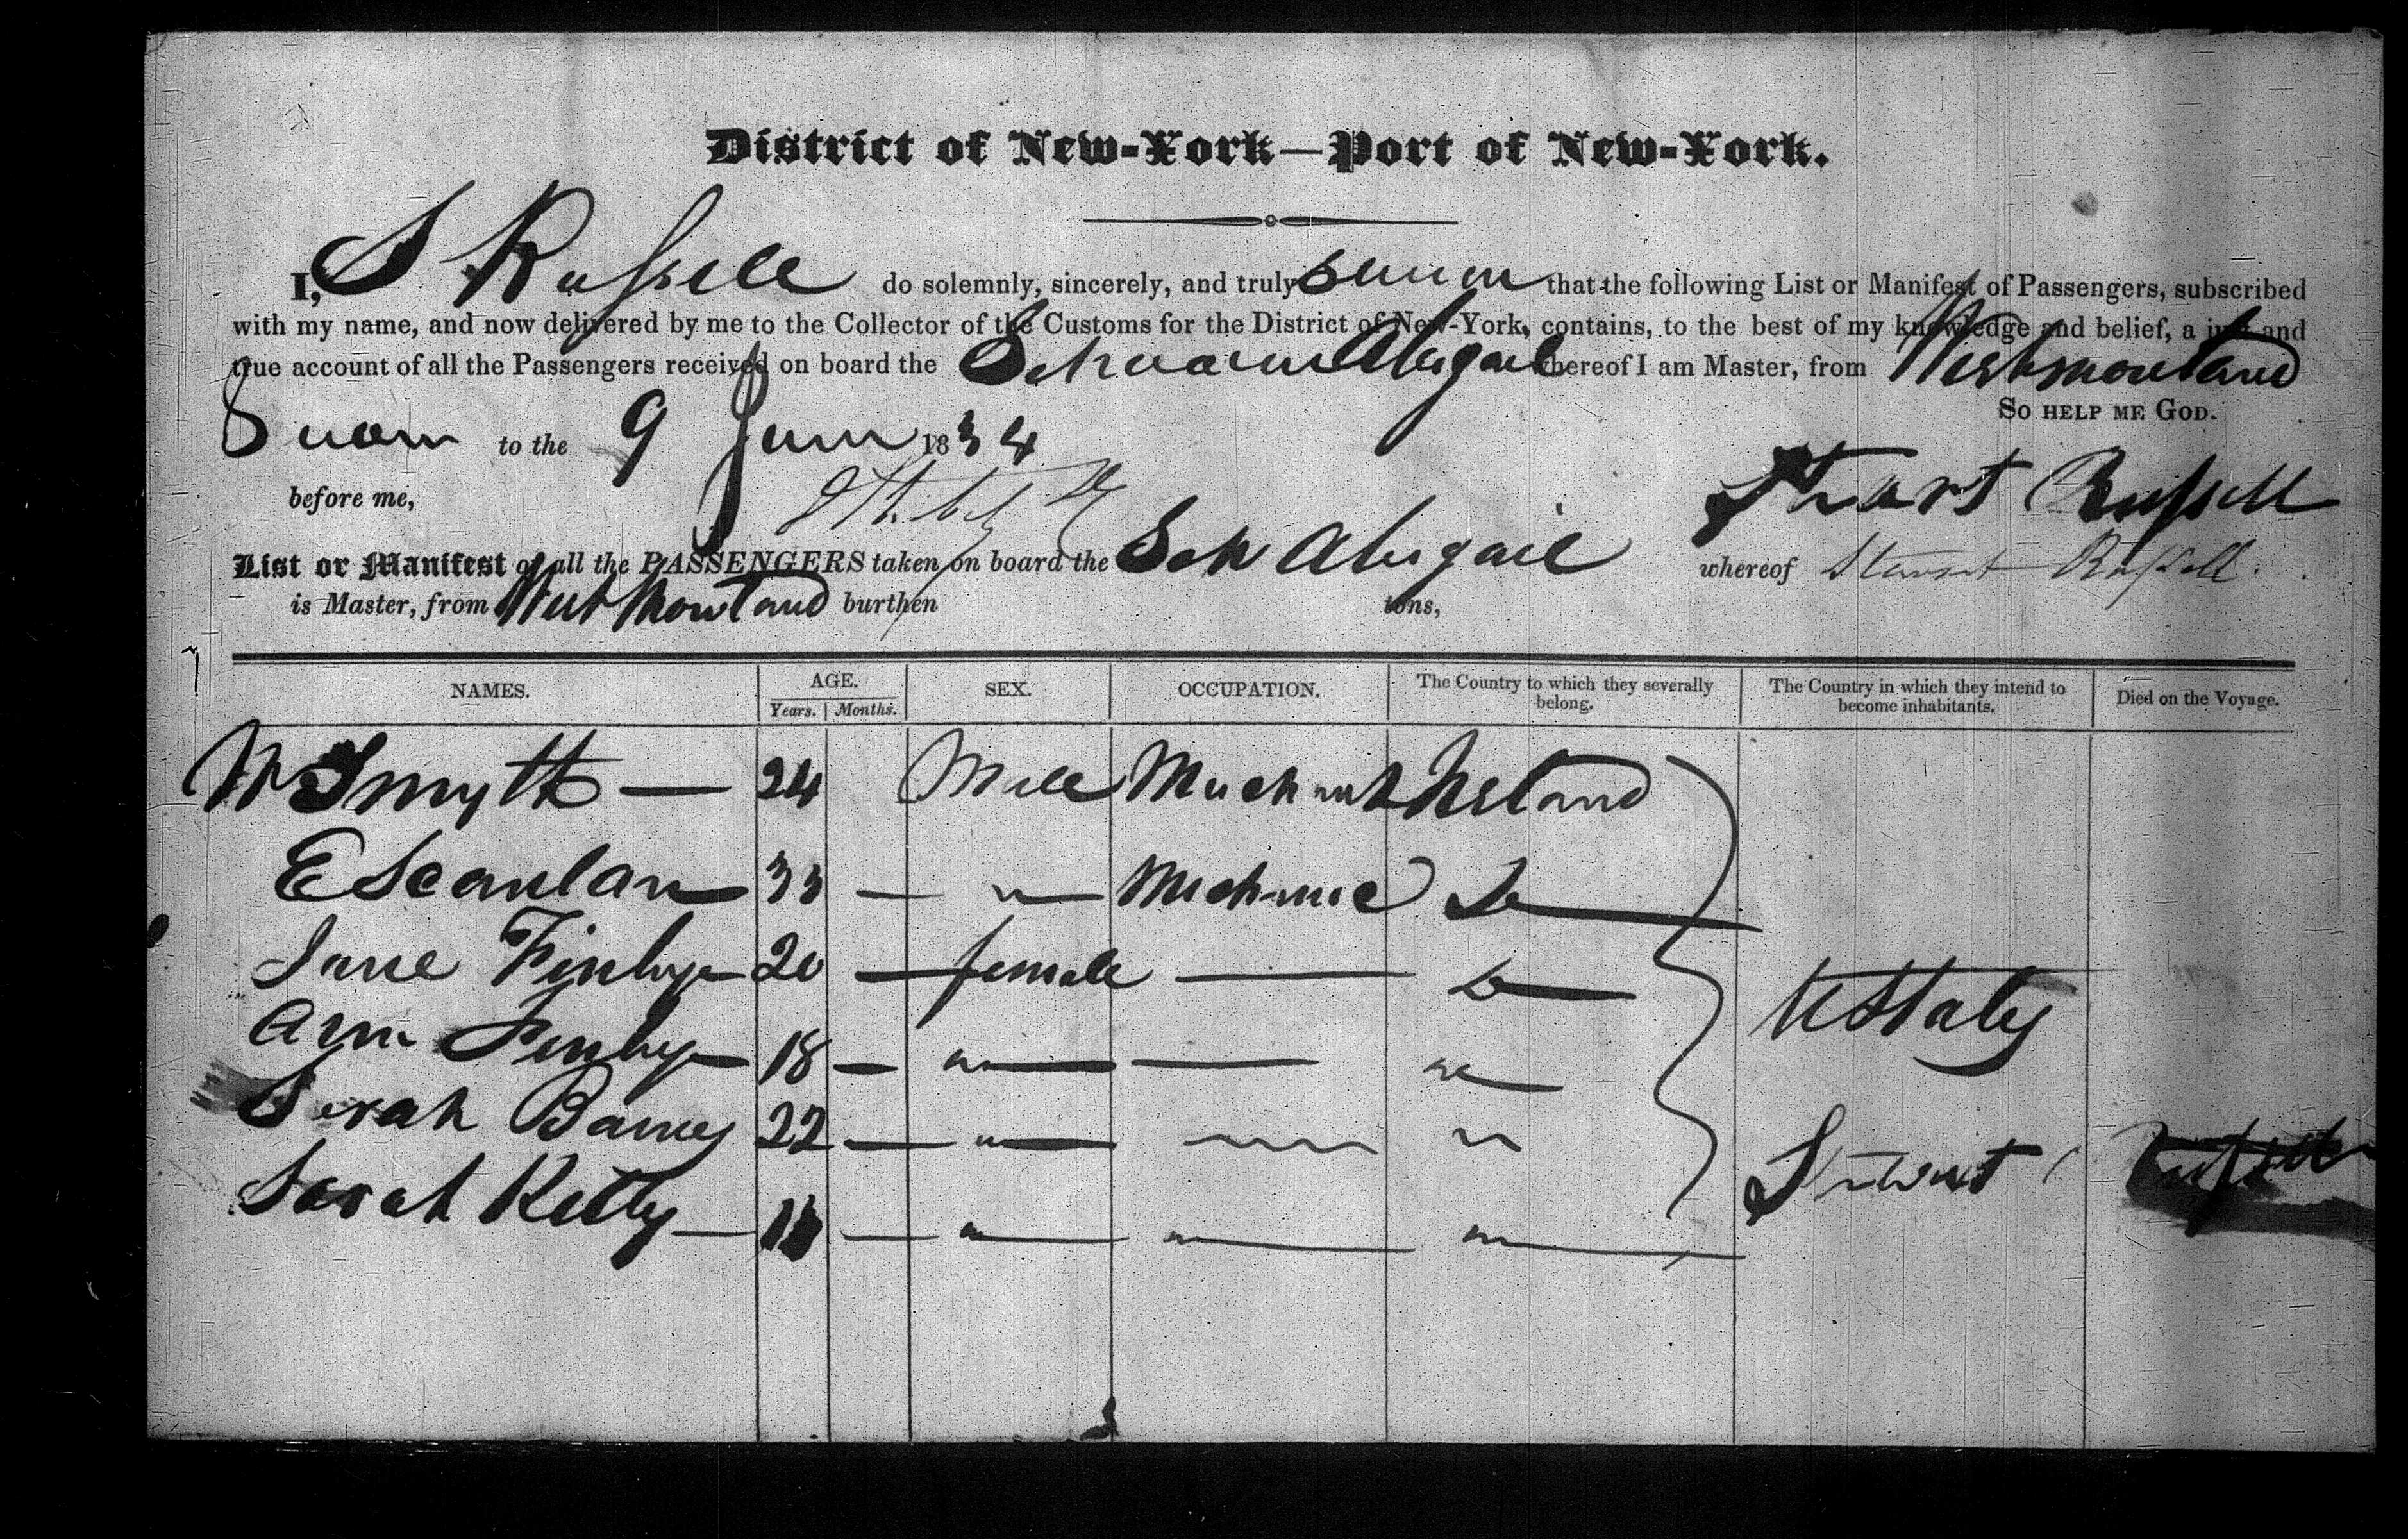 District of New-York—Port of New-York.
I, S Russell do solemnly, sincerely, and truly swear that the following List or Manifest of Passengers, subscribed
with my name, and now delivered by me to the Collector of the Customs for the District of New-York, contains, to the best of my knowledge and belief, a just and
true account of all the Passengers received on board the Schooner Abigail whereof I am Master, from Westmorland
So help me God.
Sworn to the 9 June 1834
before me,
Stewart Russell
List or Manifest of all the PASSENGERS taken on board the Sch Abigail whereof Stewart Russell
is Master, from Westmorland burthen tons,
NAMES. AGE. SEX. OCCUPATION. The Country to which they severally belong. The Country in which they intend to become inhabitants. Died on the Voyage.
Years. Months.
W Smyth — 24 Male Mechanick Ireland
E Scanlan 33 — " — Mechanic Do
Jane 20 — female — Do
Ann 18 — " — — " —
U Staly
Sarah 22 — " — " "
Stewart Russell
Sarah Kelly — " — " — " —